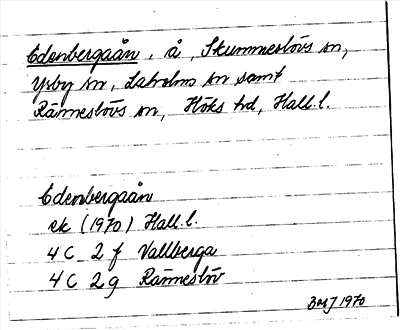 Edenbergaån, å, Skummeslövs sn,
Ysby sn, Laholms sn samt
Ränneslövs sn, Höks hd, Hall. l.
Edenbergaån
ek (1970) Hall. l.
4 C 2 f Vallberga
4 C 2 g Ränneslöv
1970